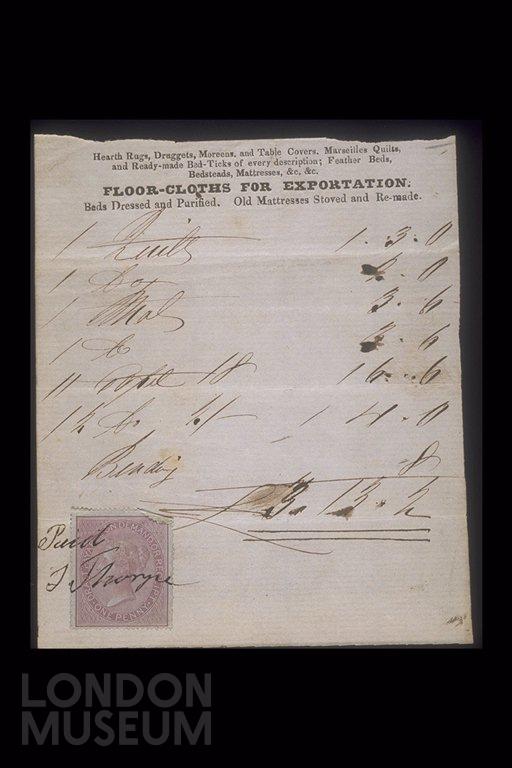 Hearth Rugs, Druggets, Moreens, and Table Covers. Marseilles Quilts,
and Ready-made Bed-Ticks of every description; Feather Beds,
Bedsteads, Mattresses, &c. &c.
FLOOR-CLOTHS FOR EXPORTATION.
Beds Dressed and Purified. Old Mattresses Stoved and Re-made.
1 Quilt 1. 3. 0
1 Do 0
1 Mat 3. 6
1 6
11 18 16. 6
1 4. 0
Binding 8
£3. 13. 2
Paid
J Thorpe
ONE PENNY
LONDON
MUSEUM